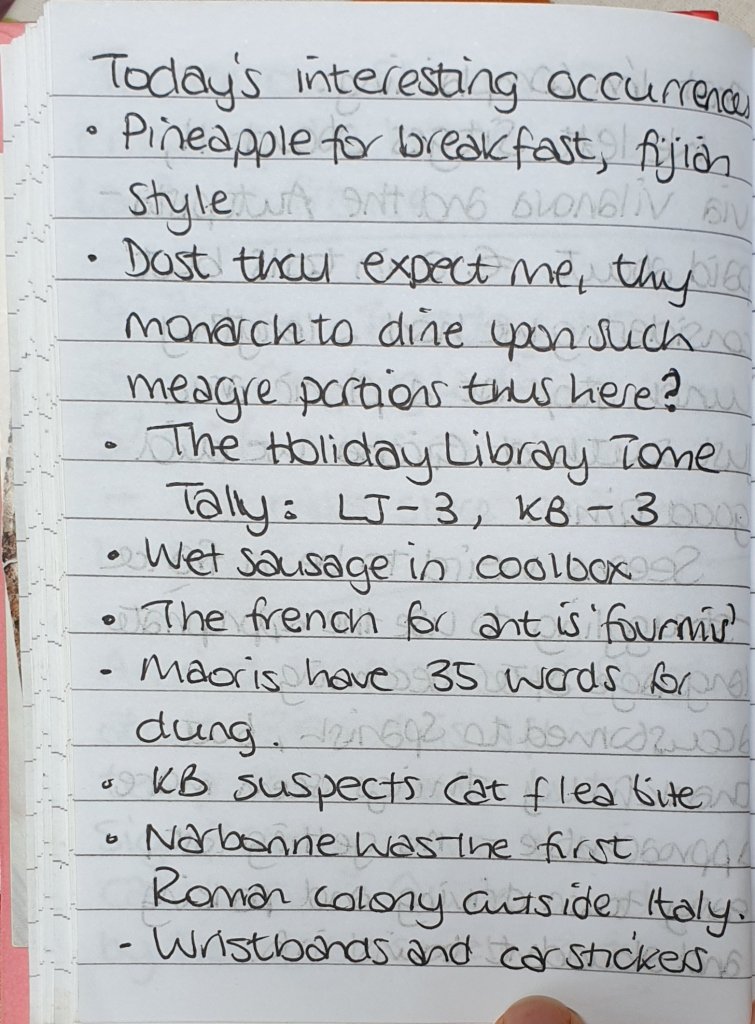 Today's interesting occurrences
• Pineapple for breakfast, fijian
style
• Dost thou expect me, thy
monarch to dine upon such
meagre portions thus here?
• The Holiday Library Tome
Tally: LJ-3, KB-3
• Wet sausage in coolbox
• The french for ant is 'fourmis'
- Maoris have 35 words for
dung.
• KB suspects cat flea bite
• Narbonne was the first
Roman colony outside Italy.
- Wristbands and car stickers